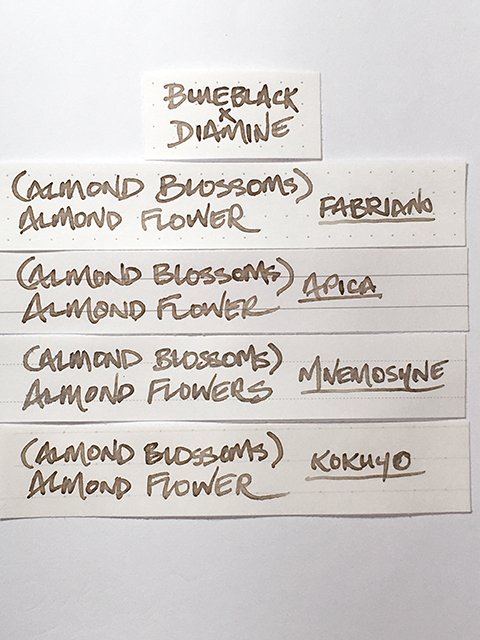 BLUEBLACK
x
DIAMINE
(ALMOND BLOSSOMS)
ALMOND FLOWER FABRIANO
(ALMOND BLOSSOMS) APICA
ALMOND FLOWER
(ALMOND BLOSSOMS)
ALMOND FLOWERS MNEMOSYNE
(ALMOND BLOSSOMS)
ALMOND FLOWER KOKUYO